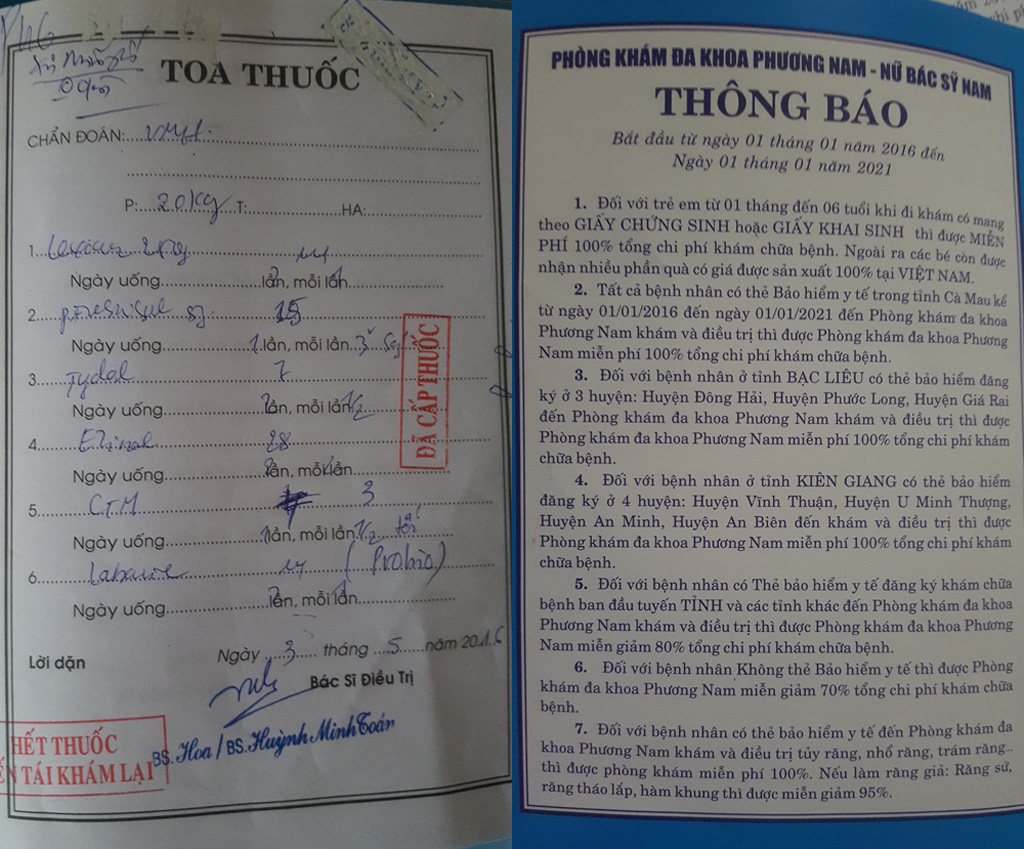 TOA THUỐC
CHẨN ĐOÁN:
P: 20kg T: HA:
1.
Ngày uống lần, mỗi lần
2. 15
Ngày uống 1 lần, mỗi lần 3
3. Tydol 7
Ngày uống lần, mỗi lần 1/2
4. 28
Ngày uống lần, mỗi lần
5. CTM 3
Ngày uống lần, mỗi lần 1/2 tối
6. (Probio)
Ngày uống lần, mỗi lần
ĐÃ CẤP THUỐC
Ngày 3 tháng 5 năm 2016
Lời dặn
Bác Sĩ Điều Trị
BS. Hoa / BS. Huỳnh Minh Toán
HẾT THUỐC
ĐẾN TÁI KHÁM LẠI
PHÒNG KHÁM ĐA KHOA PHƯƠNG NAM - NỮ BÁC SỸ NAM
THÔNG BÁO
Bắt đầu từ ngày 01 tháng 01 năm 2016 đến
Ngày 01 tháng 01 năm 2021
1. Đối với trẻ em từ 01 tháng đến 06 tuổi khi đi khám có mang
theo GIẤY CHỨNG SINH hoặc GIẤY KHAI SINH thì được MIỄN
PHÍ 100% tổng chi phí khám chữa bệnh. Ngoài ra các bé còn được
nhận nhiều phần quà có giá được sản xuất 100% tại VIỆT NAM.
2. Tất cả bệnh nhân có thẻ Bảo hiểm y tế trong tỉnh Cà Mau kể
từ ngày 01/01/2016 đến ngày 01/01/2021 đến Phòng khám đa khoa
Phương Nam khám và điều trị thì được Phòng khám đa khoa Phương
Nam miễn phí 100% tổng chi phí khám chữa bệnh.
3. Đối với bệnh nhân ở tỉnh BẠC LIÊU có thẻ bảo hiểm đăng
ký ở 3 huyện: Huyện Đông Hải, Huyện Phước Long, Huyện Giá Rai
đến Phòng khám đa khoa Phương Nam khám và điều trị thì được
Phòng khám đa khoa Phương Nam miễn phí 100% tổng chi phí khám
chữa bệnh.
4. Đối với bệnh nhân ở tỉnh KIÊN GIANG có thẻ bảo hiểm
đăng ký ở 4 huyện: Huyện Vĩnh Thuận, Huyện U Minh Thượng,
Huyện An Minh, Huyện An Biên đến khám và điều trị thì được
Phòng khám đa khoa Phương Nam miễn phí 100% tổng chi phí khám
chữa bệnh.
5. Đối với bệnh nhân có Thẻ bảo hiểm y tế đăng ký khám chữa
bệnh ban đầu tuyến TỈNH và các tỉnh khác đến Phòng khám đa khoa
Phương Nam khám và điều trị thì được Phòng khám đa khoa Phương
Nam miễn giảm 80% tổng chi phí khám chữa bệnh.
6. Đối với bệnh nhân Không thẻ Bảo hiểm y tế thì được Phòng
khám đa khoa Phương Nam miễn giảm 70% tổng chi phí khám chữa
bệnh.
7. Đối với bệnh nhân có thẻ bảo hiểm y tế đến Phòng khám đa
khoa Phương Nam khám và điều trị tủy răng, nhổ răng, trám răng...
thì được phòng khám miễn phí 100%. Nếu làm răng giả: Răng sứ,
răng tháo lắp, hàm khung thì được miễn giảm 95%.